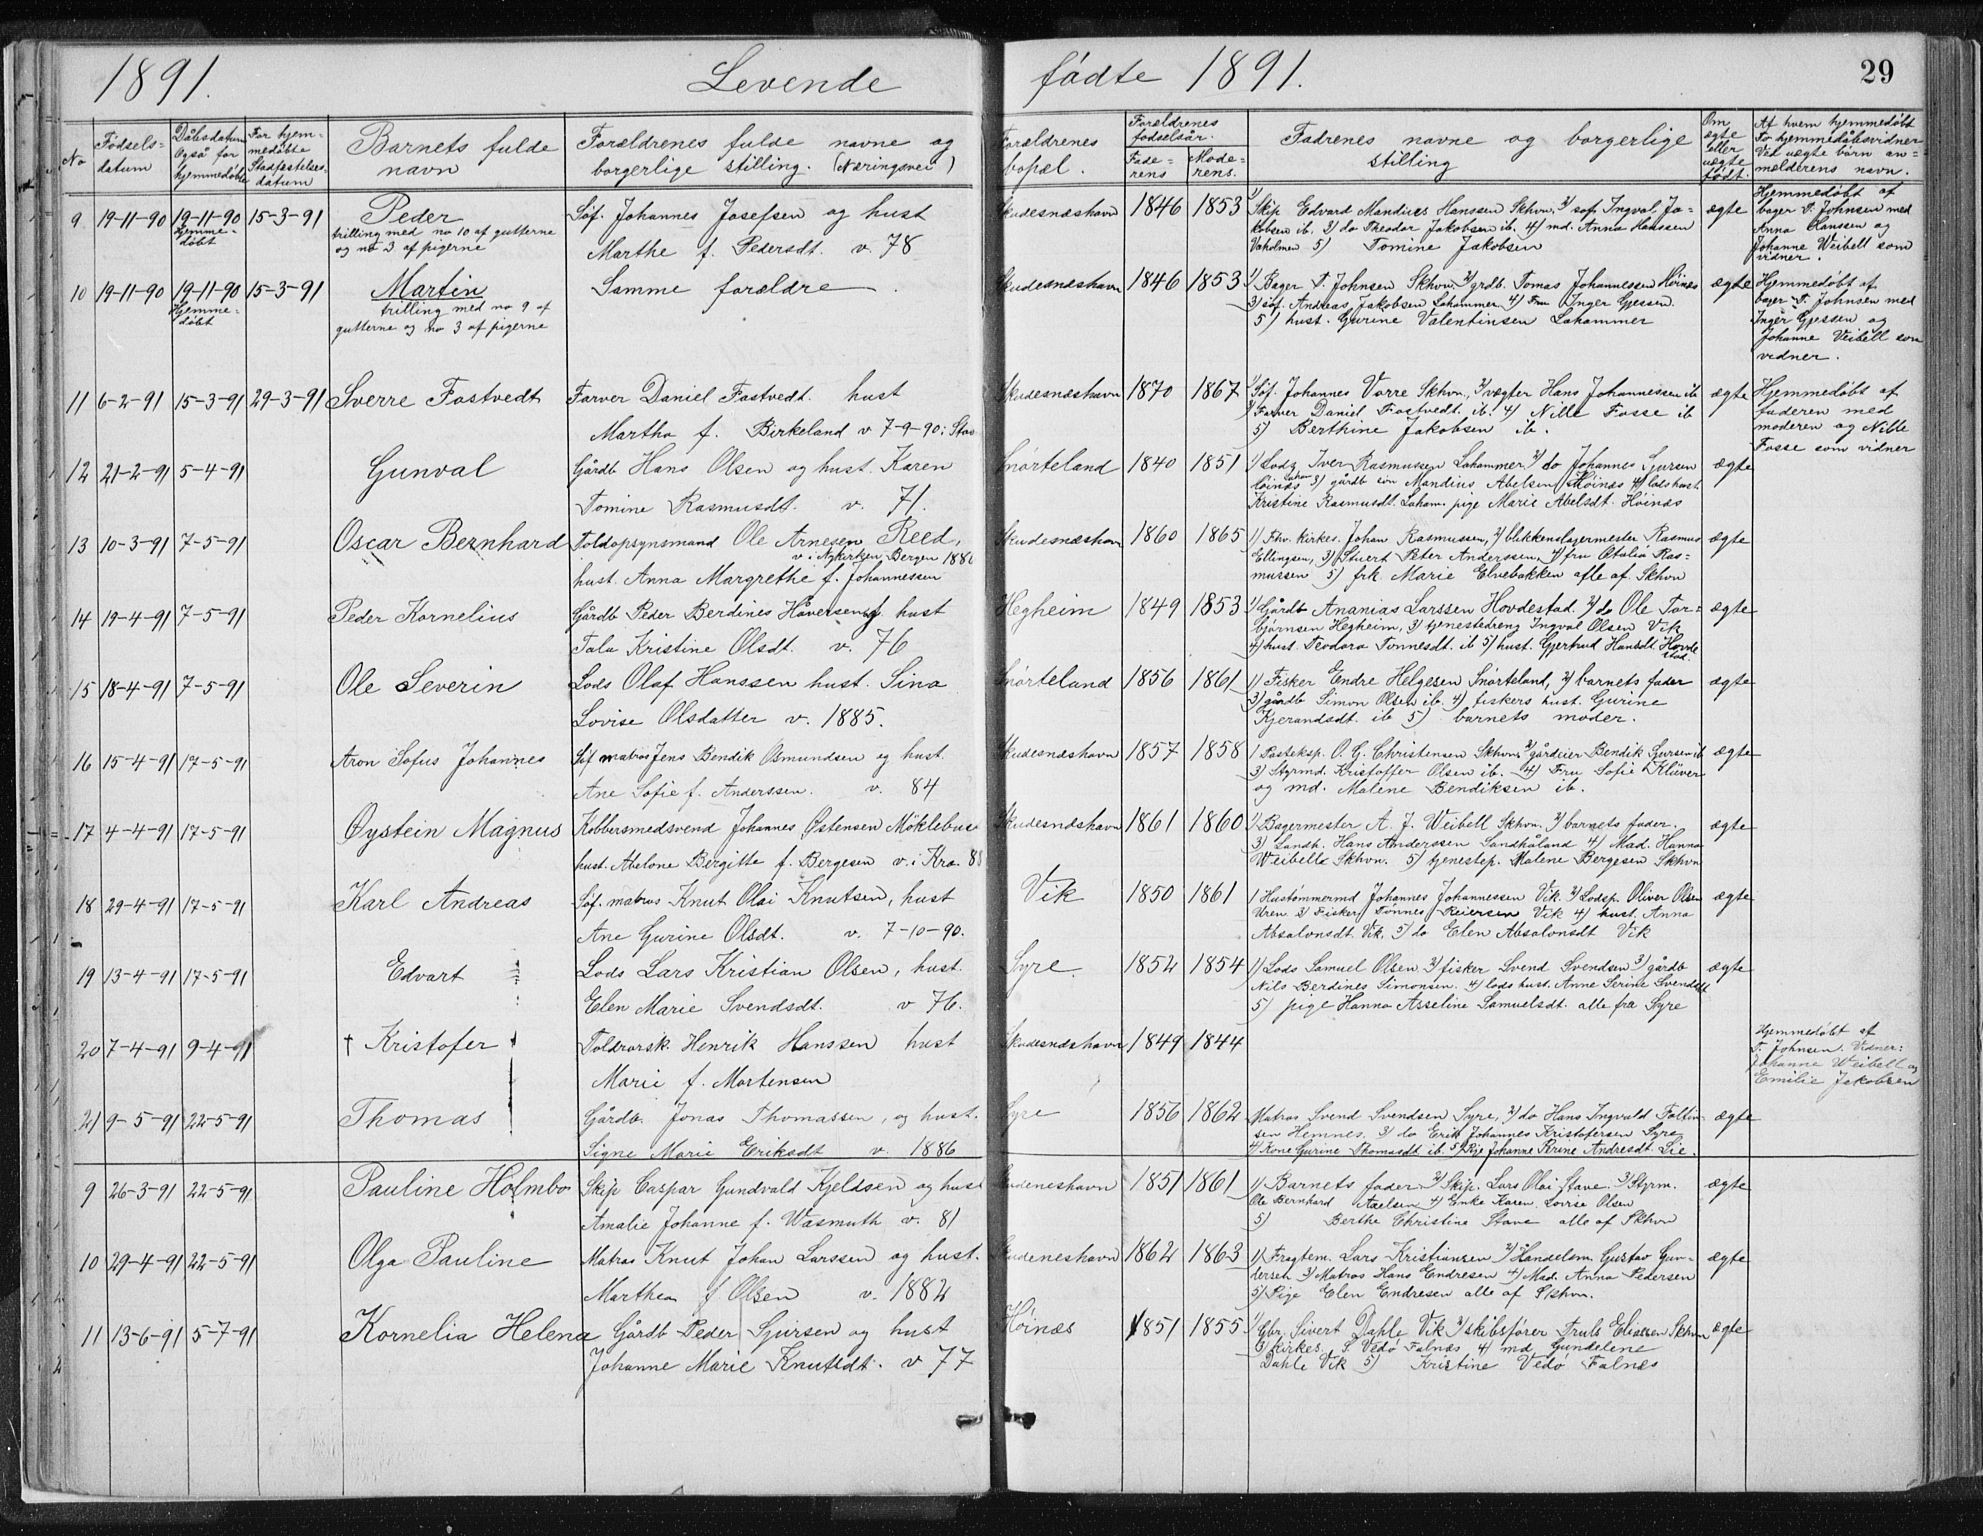 1891. Levende fødte 1891. 29
No
Fødsels-
datum
Dåbsdatum
Også for
hjemmedøbte
For hjem-
medøbte
Stadfæstelses-
datum
Barnets fulde
navn
Forældrenes fulde navne og
borgerlige stilling. (Næringsvei)
Forældrenes
bopæl.
Forældrenes
fødselsår.
Fade-
rens
Mode-
rens.
Fadrenes navne og borgerlige
stilling
Om
ægte
eller
uægte
født.
Af hvem hjemmedøbt
For hjemmedåbsvidner
Ved uægte børn an-
melderens navn.
9 19-11-90 19-11-90 15-3-91 Peder Søf. Johannes Josefsen og hust Skudesnæshavn 1846 1853 1/ Skip Edvard Mandius Hanssen Skhvn, 2/ søf. Ingval Ja- ægte Hjemmedøbt af
Hjemme-
døbt
trilling med no 10 af gutterne
og no 3 af pigerne
Marthe f. Pedersdt. v. 78
kobsen ib. 3) do Theodor Jakobsen ib. 4) md. Anna Hanssen
Vaholmen 5) Tomine Jakobsen
bager T. Johnsen med
Anna Hanssen og
Johanne Weibell som
vidner.
10 19-11-90 19-11-90 15-3-91 Martin Samme forældre. Skudesnæshavn 1846 1853 1/ Bager T. Johnsen Skhvn, 2/ grdb. Tomas Johannessen Høinæs ægte Hjemmedøbt af
Hjemme-
døbt
trilling med no 9 af
gutterne og no 3 af pigerne
3) søf. Andreas Jakobsen Lahammer. 4) Fru Inger Gjessen
5) hust. Gurine Valentinsen Lahammer
bager T. Johnsen med
Inger Gjessen og
Johanne Veibell som
vidner.
11 6-2-91 15-3-91 29-3-91 Sverre Fostvedt Farver Daniel Fostvedt. hust Skudesnæshavn 1870 1867 1/ Søf. Johannes Vorre Skhvn., 2/ vægter Hans Johannessen ib ægte Hjemmedøbt af
Martha f. Birkeland v 7-9-90 i Stav
3/ Farver Daniel Fostvedt ib. 4) Nille Fosse ib
5) Berthine Jakobsen ib.
faderen med
moderen og Nille
Fosse som vidner
12 21-2-91 5-4-91 Gunval Gårdb Hans Olsen og hust. Karen Snørteland 1840 1851 1/ Lods Iver Rasmussen Lahammer 2/ do Johannes Sjursen ægte
Tomine Rasmusdt. v. 71.
Høinæs 3) gårdb søn Mandius Abelsen Høinæs 4) lods hust.
Kristine Rasmusdt. Laham. pige Marie Abelsdt. Høinæs
13 10-3-91 7-5-91 Oscar Bernhard Toldopsynsmand Ole Arnesen Reed, Skudesnæshavn 1860 1865 1/ Fhv. kirkes. Johan Rasmussen, 2/ blikkenslagermester Rasmus ægte
v. i Nykirken, Bergen
hust. Anna Margrethe f. Johannessen
Ellingsen, 3) Stuert Peter Anderssen, 4) fru Otalia Ras-
mussen 5) frk. Marie Elvebakken alle af Skhvn
14 19-4-91 7-5-91 Peder Kornelius Gårdb Peder Berdines Håversen og hust Hegheim 1849 1853 1/ Gårdb Ananias Larssen Hovdestad. 2/ do Ole Tor- ægte
Tala Kristine Olsdt. v. 76
bjørnsen Hegheim, 3) tjenestedreng Ingval Olsen Vik
4) hust. Teodora Tønnesdt. ib 5) hust. Gjertrud Hansdt. Hovde
stad.
15 18-4-91 7-5-91 Ole Severin Lods Olaf Hanssen hust. Sina Snørteland 1856 1861 1/ Fisker Endre Helgesen Snørteland, 2/ barnets fader ægte
Lovise Olsdatter v. 1885.
3) gårdb Simon Olsen ib. 4) fiskers hust. Gurine
Kjerandsdt. ib 5) barnets moder.
16 15-4-91 17-5-91 Aron Sofus Johannes Søf. matros Jens Bendik Osmundsen og hust. Skudesnæshavn 1857 1858 1 Posteksp. O. G. Christensen Skhvn 2/ gårdeier Bendik Sjursen ib ægte
Ane Sofie f. Anderssen. v. 84
3) Styrmd. Kristoffer Olsen ib. 4) Fru Sofie Klüver
og md. Malene Bendiksen ib.
17 4-4-91 17-5-91 Øystein Magnus Kobbersmedsvend Johannes Østensen Møklebust Skudesnæshavn 1861 1860 1/ Bagermester A. J. Weibell Skhvn. 2/ barnets fader. ægte
hust. Abelone Bergitte f. Bergesen v. i Kra. 88
3) Landh. Hans Anderssen Sandhåland 4) Mad. Hanna
Weibelle Skhvn. 5) tjenestep. Malene Bergesen Skhvn
18 29-4-91 17-5-91 Karl Andreas Søf. matros Knut Olai Knutsen, hust Vik 1850 1861 1/ Hustømmermd Johannes Johannessen Vik. 2/ Lodsp. Oliver Olsen ægte
Ane Gurine Olsdt. v. 7-10-90.
Uren 3) Fisker Tønnes Reiersen Vik 4) hust. Anna
Absalonsdt. Vik. 5) do Elen Absalonsdt Vik
19 13-4-91 17-5-91 Edvart Lods Lars Kristian Olsen, hust. Syre. 1852 1854 1/ Lods Samuel Olsen 2/ fisker Svend Svendsen 3) gårdb ægte
Elen Marie Svendsdt. v 76.
Nils Berdines Simonsen. 4) lods hust. Anne Serine Svendsdt
5) pige Hanna Asseline Samuelsdt. alle fra Syre
20 7-4-91 9-4-91 † Kristofer Toldrorsk. Henrik Hanssen hust Skudesnæshavn 1849 1844 Hjemmedøbt af
Marie f. Mortensen
T. Johnsen. Vidner:
Johanne Weibell og
Emilie Jakobsen
21 9-5-91 22-5-91 Thomas Gårdb. Jonas Thomassen, og hust. Syre 1856 1862 Matros Svend Svendsen Syre, 2) do Hans Ingvald Foltin- ægte
Signe Marie Eriksdt v. 1886
sen Hemnes. 3) do Erik Johannes Kristofersen Syre
4) Kone Gurine Thomasdt ib. 5) Pige Johanne Serine Andresdt. Lie.
9 26-3-91 22-5-91 Pauline Holmbo Skip Caspar Gundvald Kjeldsen og hust Skudeneshavn 1851 1861 1/ Barnets fader 2/ Skip. Lars Olai Stave. 3) Styrm. ægte
Amalie Johanne f. Wasmuth v. 81
Ole Bernhard Axelsen 4) Enke Karen Lovise Olsen
5) Berthe Christine Stave alle af Skhvn
10 29-4-91 22-5-91 Olga Pauline Matros Knut Johan Larssen og hust. Skudeneshavn 1862 1863 1/ Fragtem. Lars Kristiansen 2/ Handelsm. Gustav Gun- ægte
Marthea f Olsen v. 1882
dersen 3) Matros Hans Endresen 4) Mad. Anna Pedersen
5) Pige Elen Endresen alle af Skhvn.
11 13-6-91 5-7-91 Kornelia Helena Gårdb Peder Sjursen og hust Høinæs 1851 1855 1/ Gbr. Sivert Dahle Vik 2/ skibsfører Truls Eliassen Skhvn ægte
Johanne Marie Knutsdt. v 77
3) kirkes. S. Vedø Falnæs 4) md Gundelene
Dahle Vik 5) Kristine Vedø Falnæs